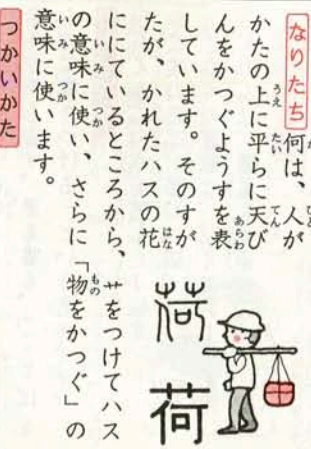 なりたち 何は、人が
かたの上に平らに天び
んをかつぐようすを表
しています。そのすが
たが、かれたハスの花
ににているところから、
艹をつけてハス
の意味に使い、さらに
「物をかつぐ」の
意味に使います。
荷
荷
つかいかた